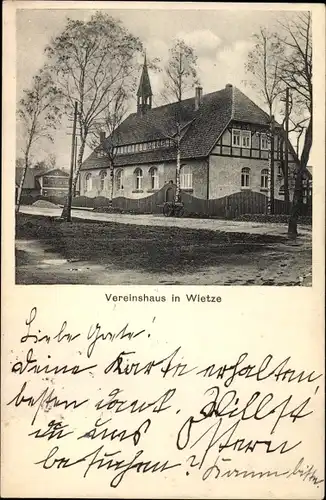 Vereinshaus in Wietze
Liebe Grete!
Deine Karte erhalten,
besten Dank. Willst
du uns Ostern
besuchen? Komm bitte.